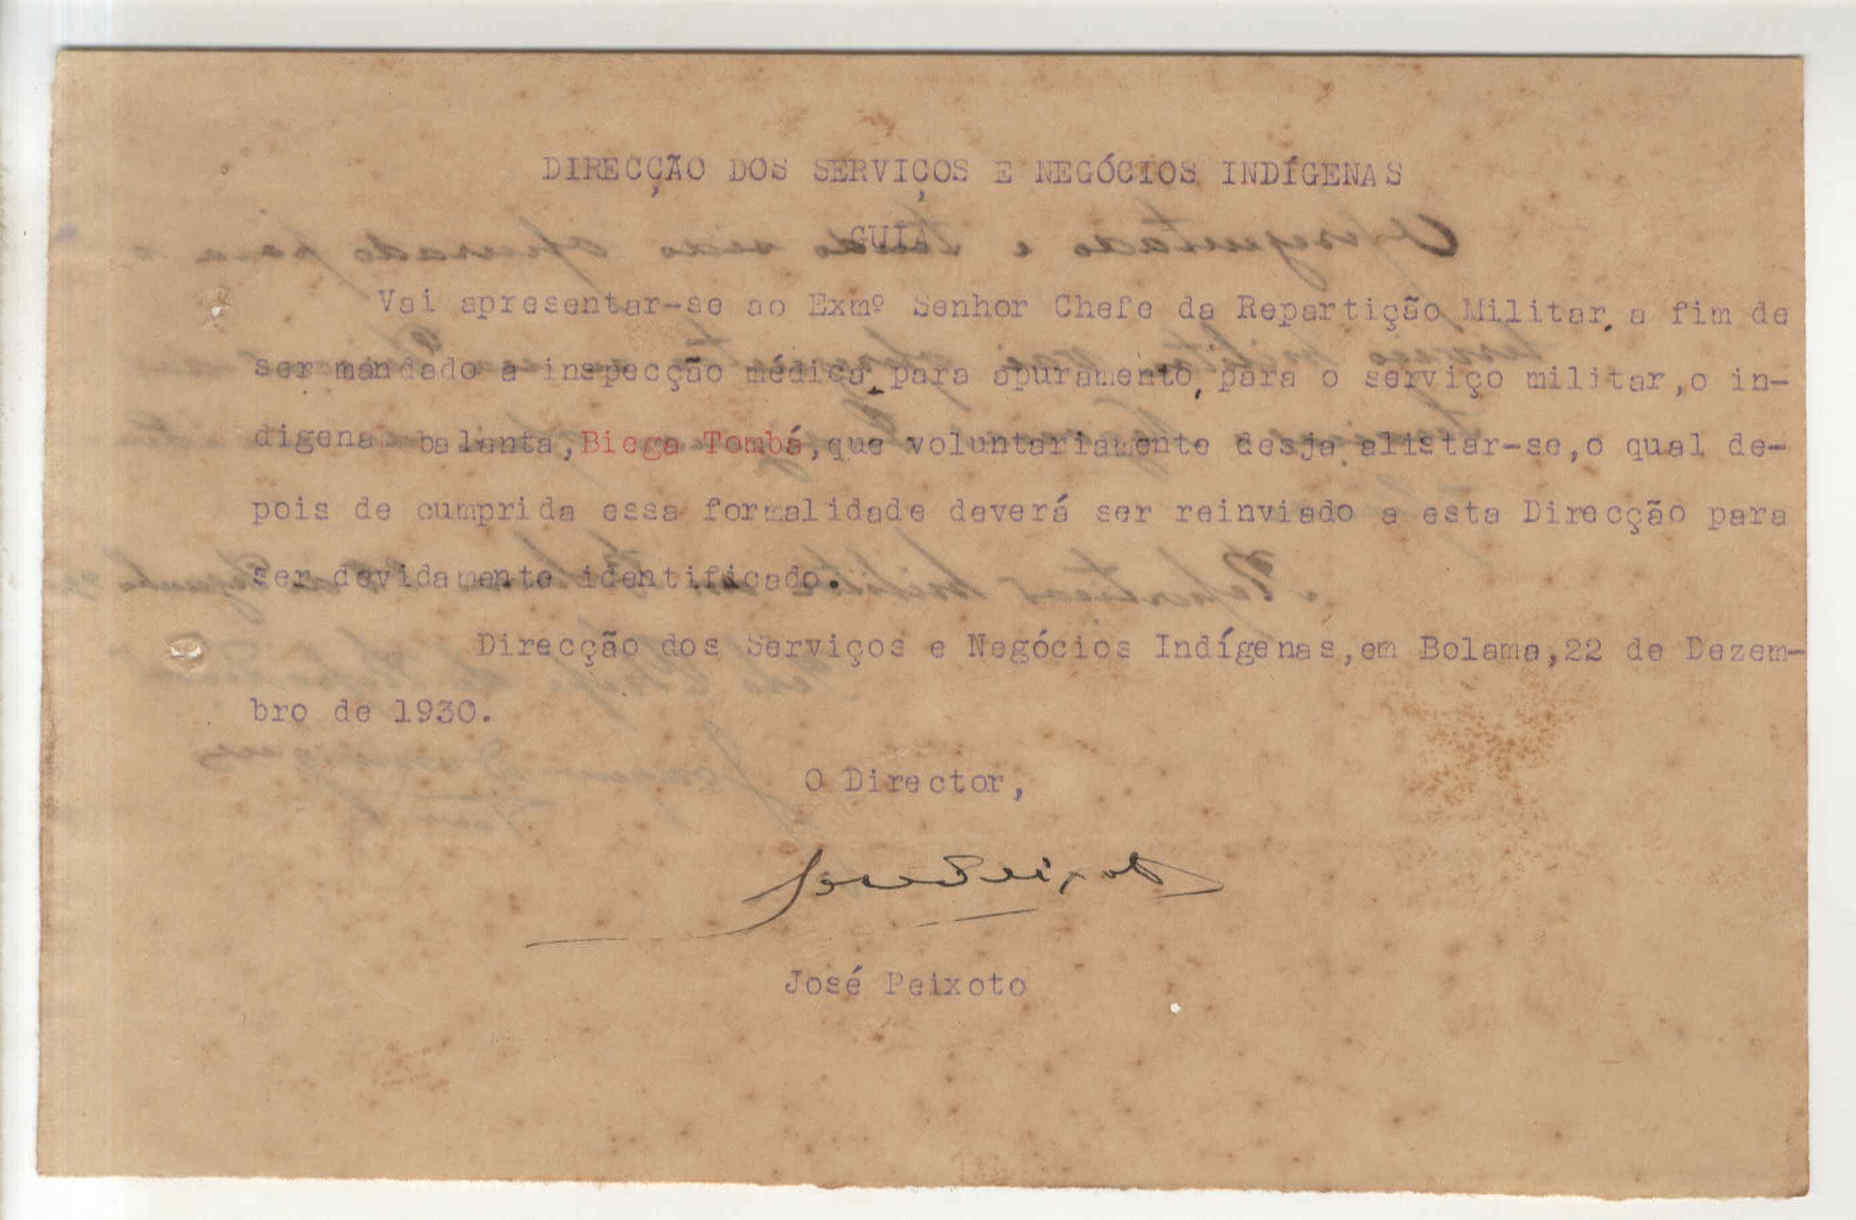 DIRECÇÃO DOS SERVIÇOS E NEGÓCIOS INDÍGENAS
GUIA
Vai apresentar-se ao Exmº Senhor Chefe da Repartição Militar, a fim de
ser mandado a inspecção médica, para apuramento, para o serviço militar,o in-
digena balanta,Biega Tombá,que voluntariamente desja alistar-se,o qual de-
pois de cumprida essa formalidade deverá ser reinviado a esta Direcção para
ser devidamente identificado.
Direcção dos Serviços e Negócios Indígenas,em Bolama,22 de Dezem-
bro de 1930.
O Director,
José Peixoto
José Peixoto